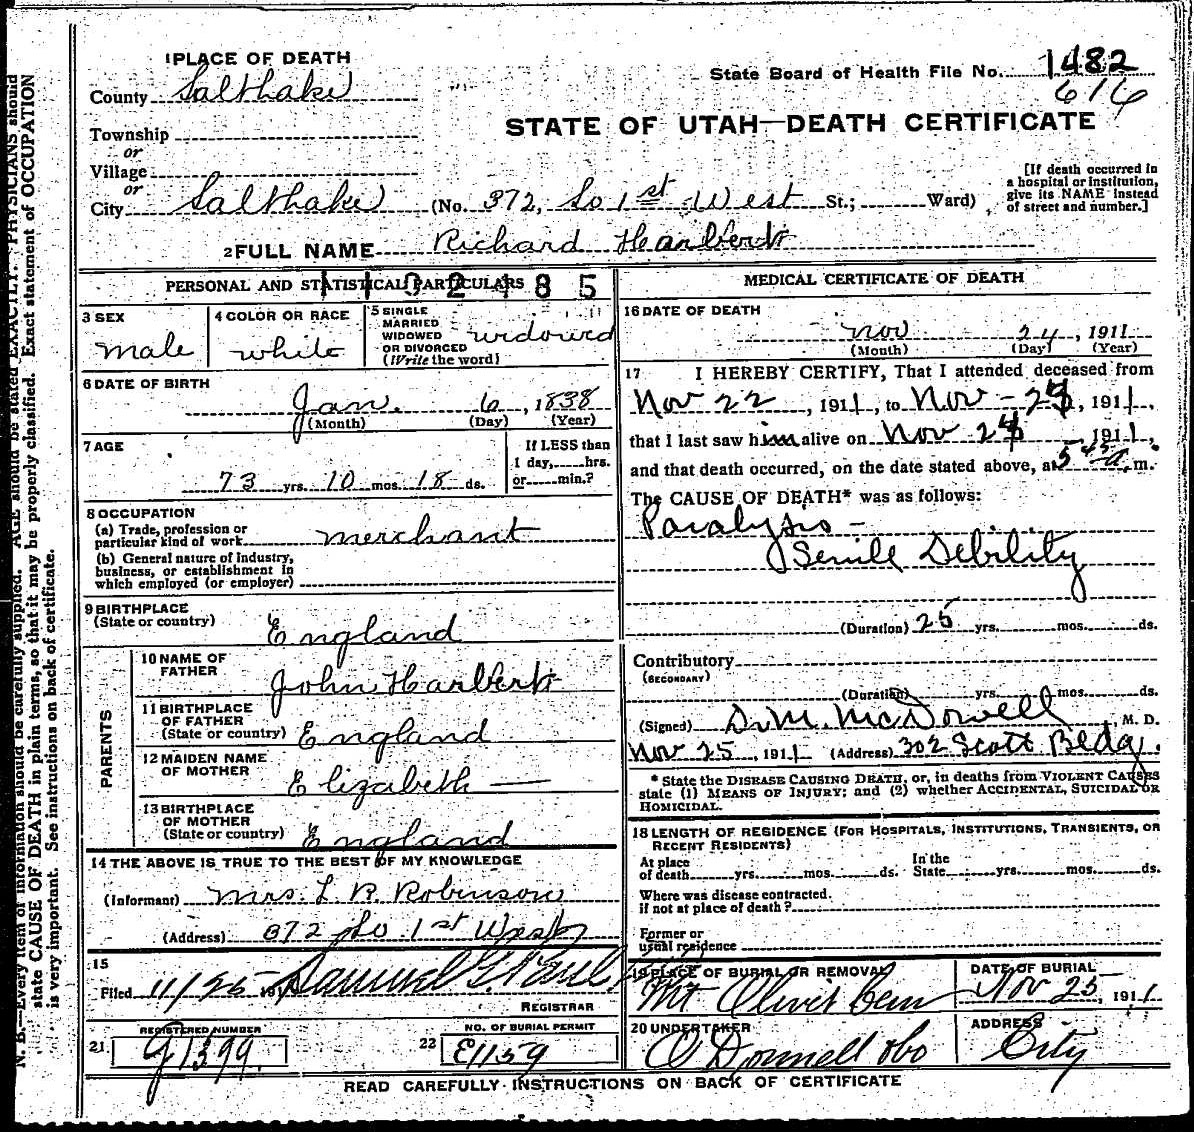 1 PLACE OF DEATH
County Salt Lake
State Board of Health File No. 1482
616
STATE OF UTAH—DEATH CERTIFICATE
Township
or
Village
or
City Salt Lake (No. 372, So 1st West St.; Ward)
[If death occurred in
a hospital or institution,
give its NAME instead
of street and number.]
2 FULL NAME Richard Harlbert
1102185
PERSONAL AND STATISTICAL PARTICULARS
3 SEX
male
4 COLOR OR RACE
white
5 SINGLE
MARRIED
WIDOWED
OR DIVORCED
(Write the word)
widowed
6 DATE OF BIRTH
Jan. 6, 1838
(Month) (Day) (Year)
7 AGE
73 yrs. 10 mos. 18 ds.
If LESS than
1 day, hrs.
or min.?
8 OCCUPATION
(a) Trade, profession or
particular kind of work merchant
(b) General nature of industry,
business, or establishment in
which employed (or employer)
9 BIRTHPLACE
(State or country) England
PARENTS
10 NAME OF
FATHER John Harlbert
11 BIRTHPLACE
OF FATHER
(State or country) England
12 MAIDEN NAME
OF MOTHER Elizabeth —
13 BIRTHPLACE
OF MOTHER
(State or country) England
14 THE ABOVE IS TRUE TO THE BEST OF MY KNOWLEDGE
(Informant) Mrs. L. R. Robinson
(Address) 372 So 1st West
15
Filed 11/25 Samuel G.
REGISTRAR
REGISTERED NUMBER
21. G1399.
NO. OF BURIAL PERMIT
22 E1159
MEDICAL CERTIFICATE OF DEATH
16 DATE OF DEATH
Nov 24, 1911
(Month) (Day) (Year)
17 I HEREBY CERTIFY, That I attended deceased from
Nov 22, 1911, to Nov - 24, 1911,
that I last saw him alive on Nov 24, 1911,
and that death occurred, on the date stated above, at 5 45 a. m.
The CAUSE OF DEATH* was as follows:
Paralysis -
Senile Debility
(Duration) 25 yrs. mos. ds.
Contributory
(SECONDARY)
(Duration) yrs. mos. ds.
(Signed) D. M. McDowell, M. D.
Nov 25, 1911 (Address) 302 Scott Bldg.
* State the DISEASE CAUSING DEATH, or, in deaths from VIOLENT CAUSES
state (1) MEANS OF INJURY; and (2) whether ACCIDENTAL, SUICIDAL OR
HOMICIDAL.
18 LENGTH OF RESIDENCE (FOR HOSPITALS, INSTITUTIONS, TRANSIENTS, OR
RECENT RESIDENTS)
At place
of death yrs. mos. ds.
In the
State yrs. mos. ds.
Where was disease contracted.
if not at place of death?
Former or
usual residence
19 PLACE OF BURIAL OR REMOVAL
Mt Olivet Cem
DATE OF BURIAL
Nov 25, 1911
20 UNDERTAKER
O Donnell &co
ADDRESS
City
READ CAREFULLY INSTRUCTIONS ON BACK OF CERTIFICATE
N. B.—Every item of information should be carefully supplied. AGE should be stated EXACTLY. PHYSICIANS should
state CAUSE OF DEATH in plain terms, so that it may be properly classified. Exact statement of OCCUPATION
is very important. See instructions on back of certificate.